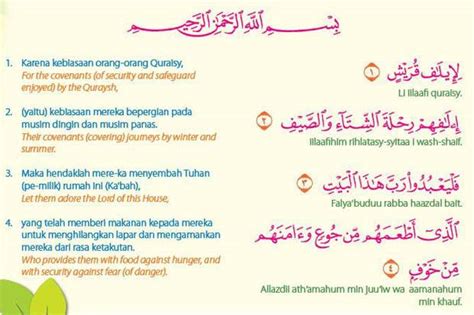 بِسْمِ اللَّهِ الرَّحْمَٰنِ الرَّحِيمِ
1. Karena kebiasaan orang-orang Quraisy,
For the covenants (of security and safeguard
enjoyed) by the Quraysh,
لِإِيلَافِ قُرَيْشٍ ١
Li Iilaafi quraisy.
2. (yaitu) kebiasaan mereka bepergian pada
musim dingin dan musim panas.
Their covenants (covering) journeys by winter and
summer.
إِيلَافِهِمْ رِحْلَةَ الشِّتَاءِ وَالصَّيْفِ ٢
Iilaafihim rihlatasy-syitaa i wash-shaif.
3. Maka hendaklah mere-ka menyembah Tuhan
(pe-milik) rumah ini (Ka'bah),
Let them adore the Lord of this House,
فَلْيَعْبُدُوا رَبَّ هَٰذَا الْبَيْتِ ٣
Falya'buduu rabba haazdal bait.
4. yang telah memberi makanan kepada mereka
untuk menghilangkan lapar dan mengamankan
mereka dari rasa ketakutan.
Who provides them with food against hunger, and
with security against fear (of danger).
الَّذِي أَطْعَمَهُم مِّن جُوعٍ وَآمَنَهُم
مِّنْ خَوْفٍ ٤
Allazdii ath'amahum min juu'iw wa aamanahum
min khauf.